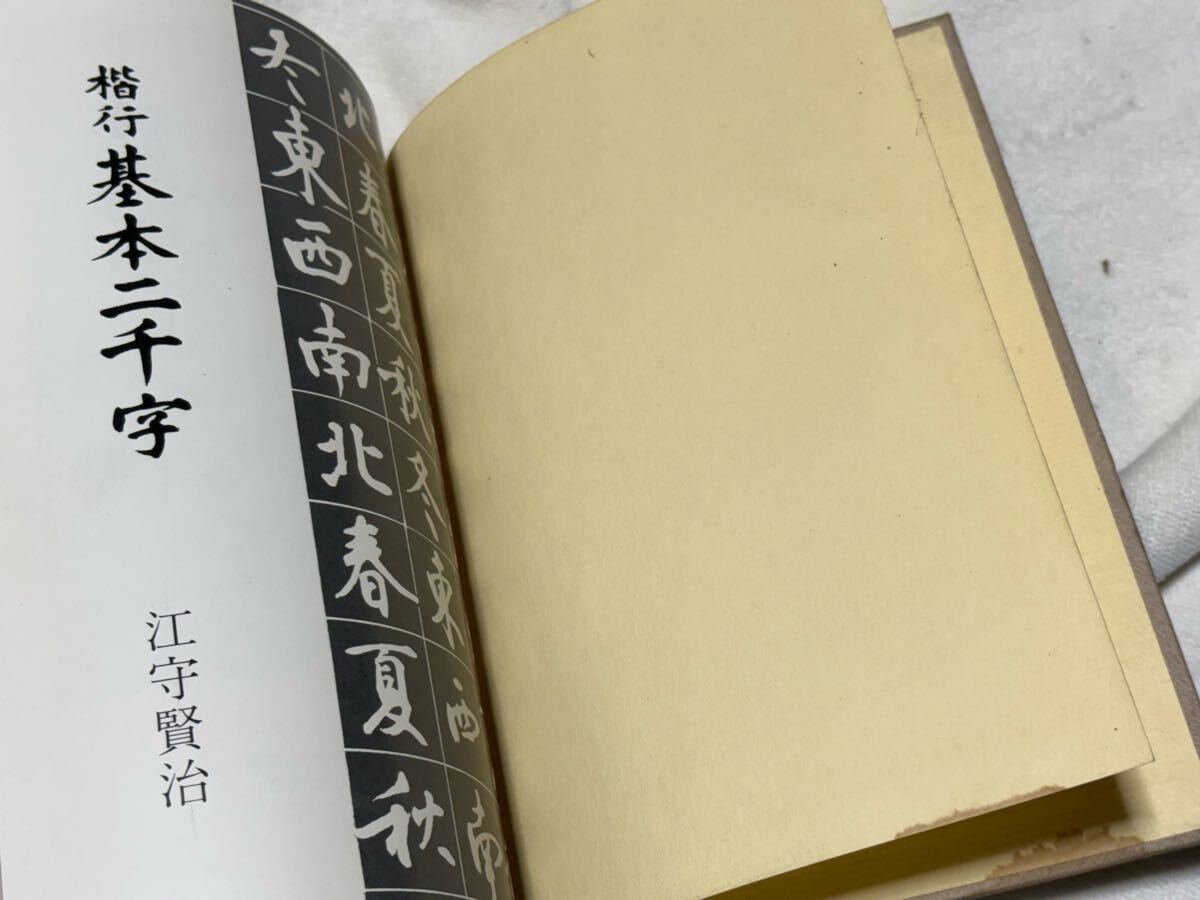 楷行 基本二千字
江守賢治
冬東西南北春夏秋
北春夏秋冬東西南